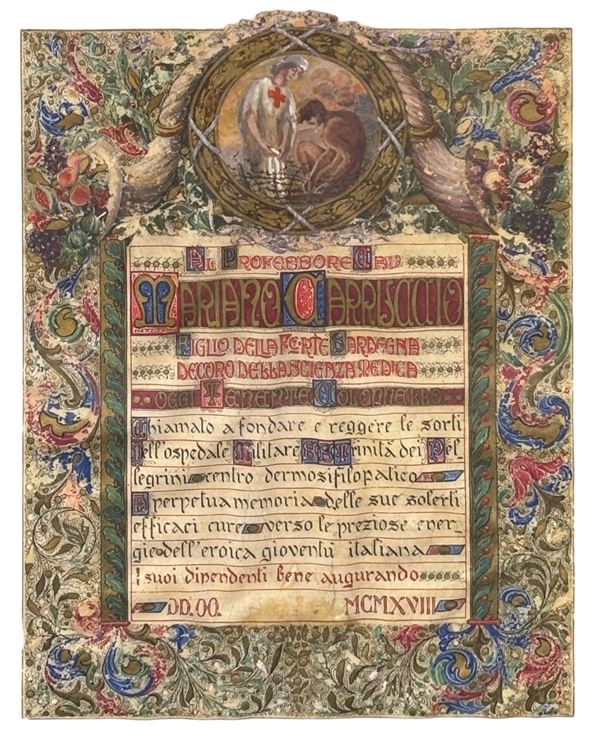 AL PROFESSORE CAV.
MARIANO CARRUCCIO
FIGLIO DELLA FORTE SARDEGNA
DECORO DELLA SCIENZA MEDICA
OGGI TENENTE COLONNELLO
Chiamato a fondare e reggere le sorti
dell'ospedale Militare SS Trinità dei Pel-
legrini centro dermosifilopatico
A perpetua memoria delle sue solerti
efficaci cure verso le preziose ener-
gie dell'eroica gioventù italiana
I suoi dipendenti bene augurando
DD.OO. MCMXVIII